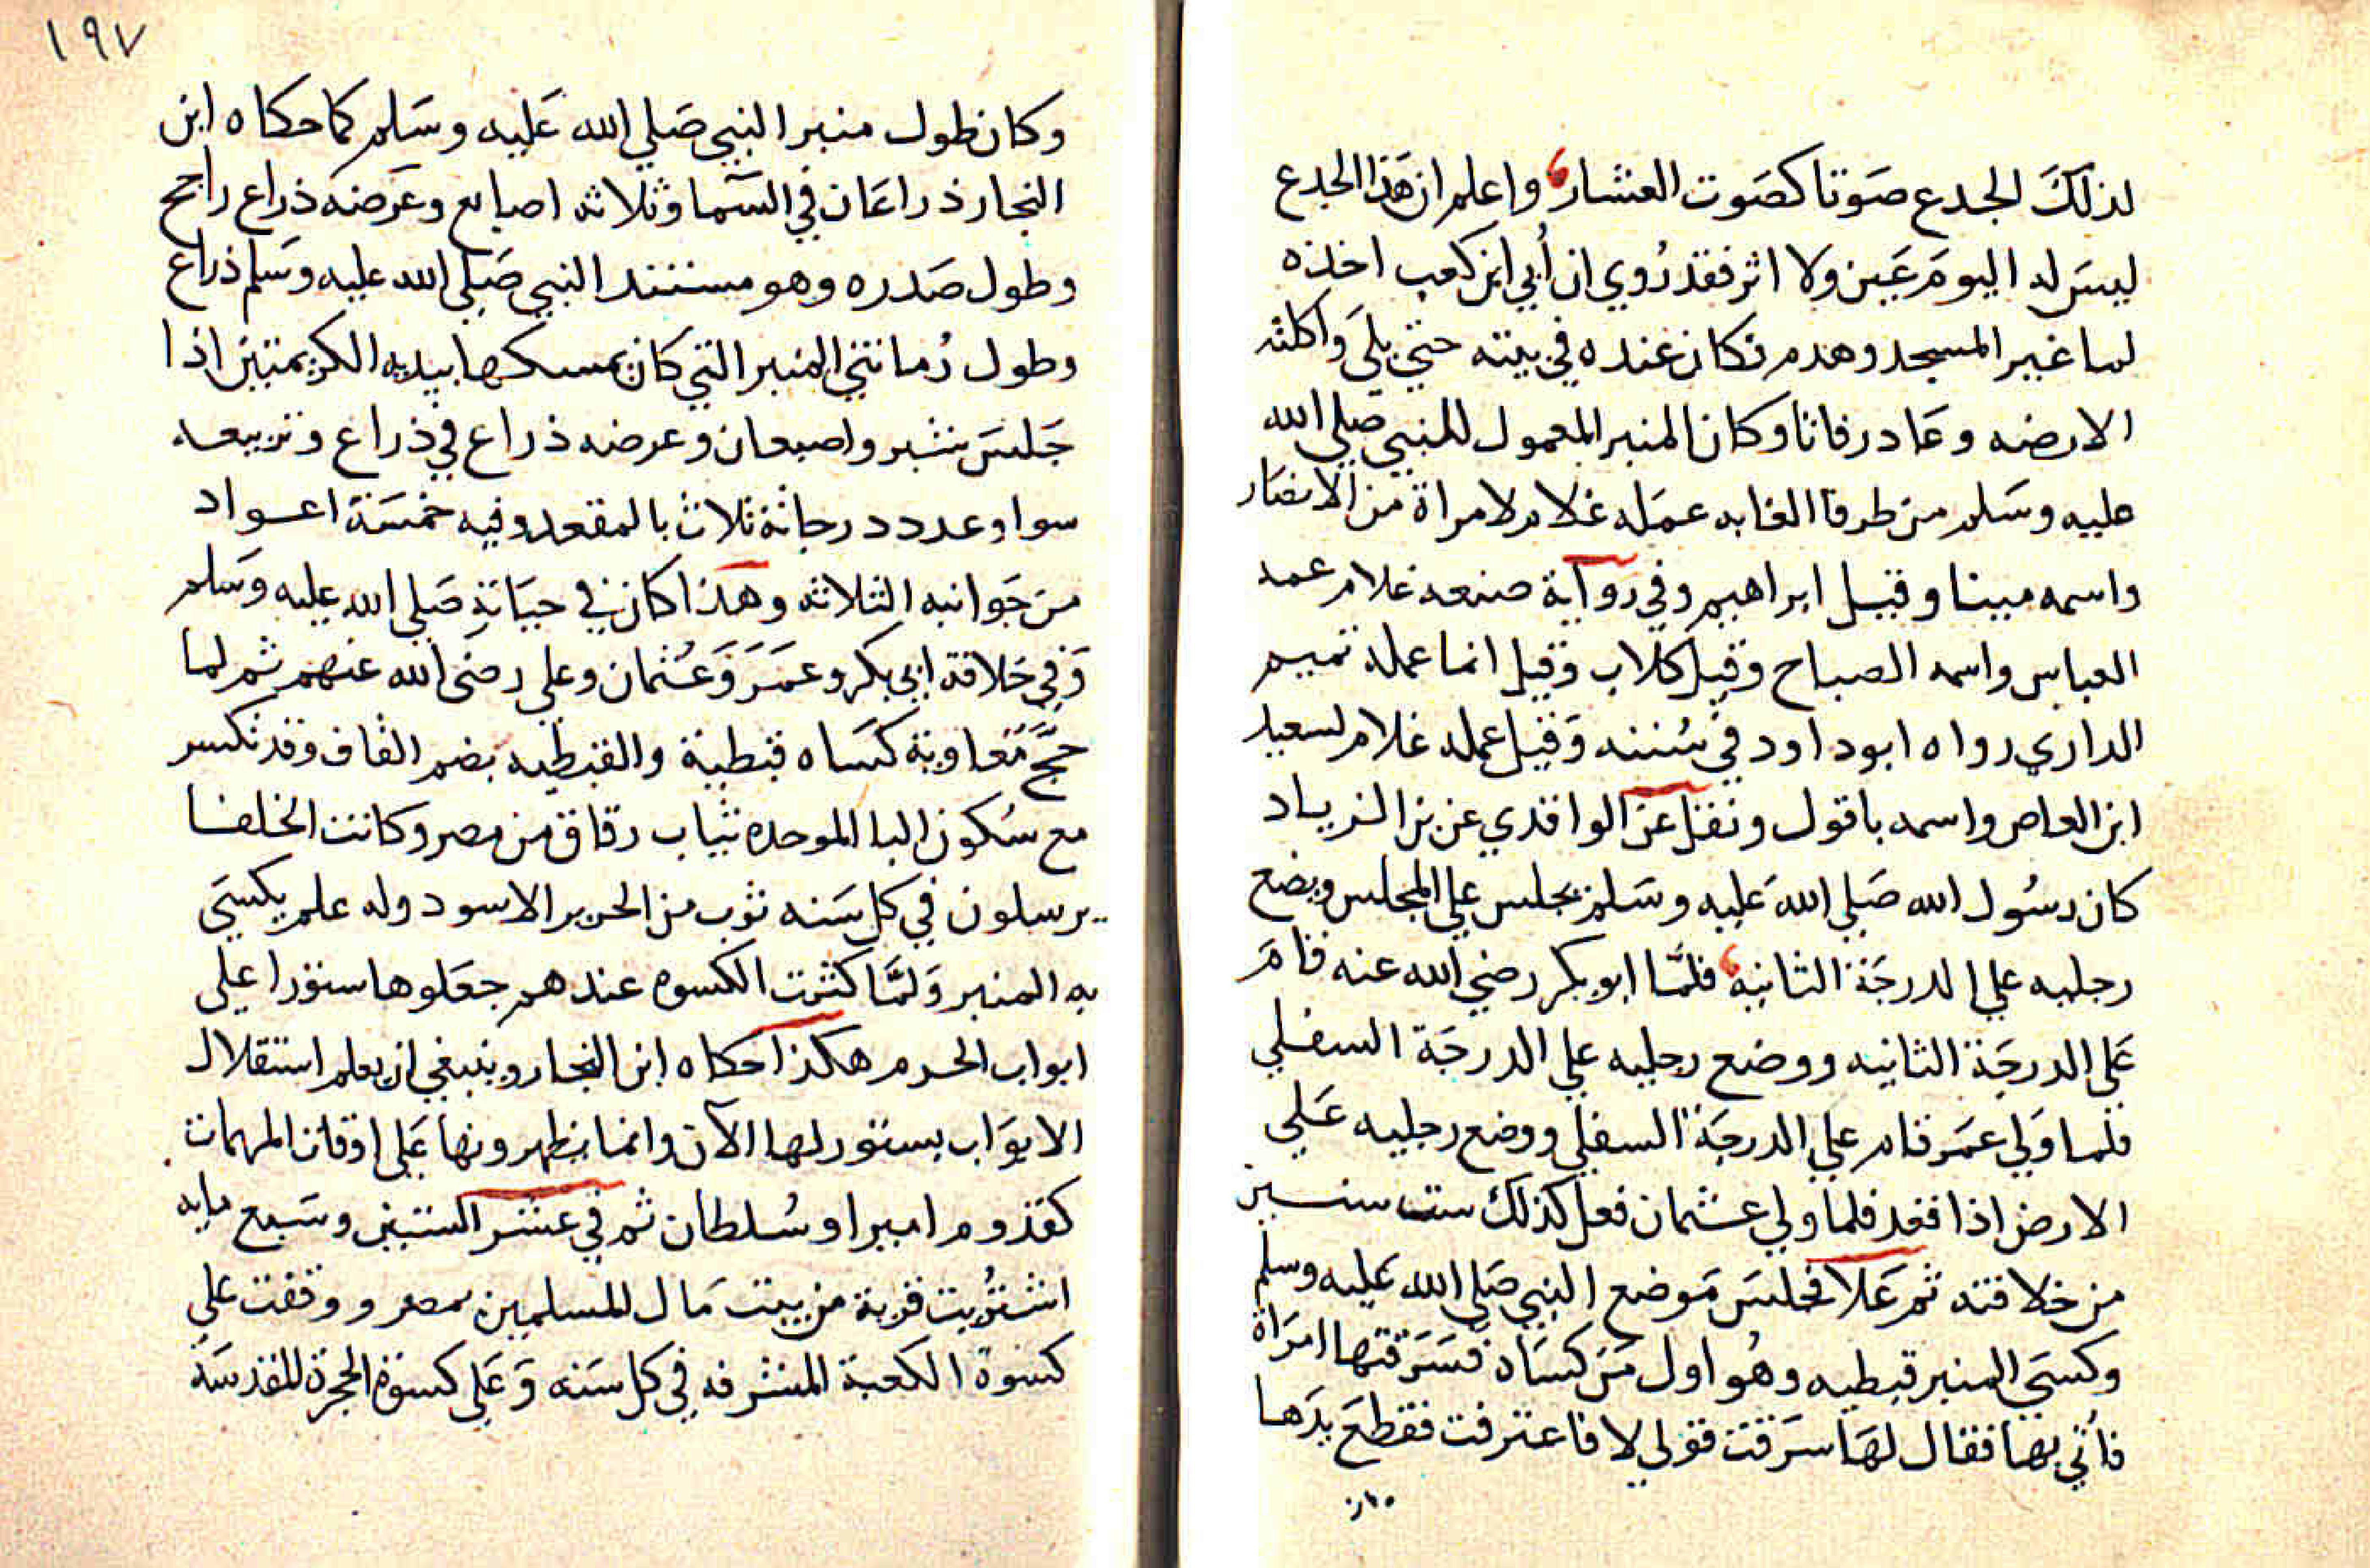 لذلك الجدع صوتا كصوت العشار واعلم ان هذا الجدع
ليس له اليوم عين ولا اثر فقد روي ان أبي ابن كعب اخذه
لما غير المسجد وهدم فكان عنده في بيته حتي بلي واكلته
الارضه وعاد رفاتا وكان المنبر المعمول للنبي صلي الله
عليه وسلم من طرفا الغابه عمله غلام لامراة من الانصار
واسمه مينا وقيل ابراهيم وفي رواية صنعه غلام عمه
العباس واسمه الصباح وقيل كلاب وقيل انما عمله تميم
الداري رواه ابو داود في سننه وقيل عمله غلام لسعيد
ابن العاص واسمه باقول ونقل عن الواقدي عن بن الزياد
كان رسول الله صلي الله عليه وسلم يجلس علي المجلس ويضع
رجليه علي الدرجة الثانيه فلما ابو بكر رضي الله عنه قام
علي الدرجة الثانيه ووضع رجليه علي الدرجة السفلي
فلما ولي عمر قام علي الدرجة السفلي ووضع رجليه علي
الارض اذا قعد فلما ولي عثمان فعل كذلك ست سنين
من خلافته ثم علا فجلس موضع النبي صلي الله عليه وسلم
وكسي المنبر قبطيه وهو اول من كساه فسرقتها امراة
فأتي بها فقال لها سرقت قولي لا فاعترفت فقطع يدها
١٩٧
وكان طول منبر النبي صلي الله عليه وسلم كما حكاه ابن
النجار ذراعان في السما وثلاثه اصابع وعرضه ذراع راجح
وطول صدره وهو مستند النبي صلي الله عليه وسلم ذراع
وطول رمانتي المنبر التي كان يمسكها بيديه الكريمتين اذا
جلس شبر واصبعان وعرضه ذراع في ذراع وتربيعه
سوا وعدد درجاته ثلاث بالمقعد وفيه خمسة اعواد
من جوانبه الثلاثه وهذا كان في حياته صلي الله عليه وسلم
وفي خلافة ابي بكر وعمر وعثمان وعلي رضي الله عنهم ثم لما
حج معاوية كساه قبطية والقبطيه بضم القاف وقد تكسر
مع سكون البا الموحده ثياب رقاق من مصر وكانت الخلفا
يرسلون في كل سنه ثوب من الحرير الاسود وله علم يكسي
به المنبر ولما كثرت الكسوه عندهم جعلوها ستورا علي
ابواب الحرم هكذا حكاه ابن النجار وينبغي ان يعلم استقلال
الابواب بستور لها الآن وانما يظهرونها علي اوقات المهمات
كقدوم امير او سلطان ثم في عشر الستين وسبع مايه
اشتريت قرية من بيت مال المسلمين بمصر ووقفت علي
كسوة الكعبة المشرفه في كل سنه وعلي كسوة الحجرة المقدسة